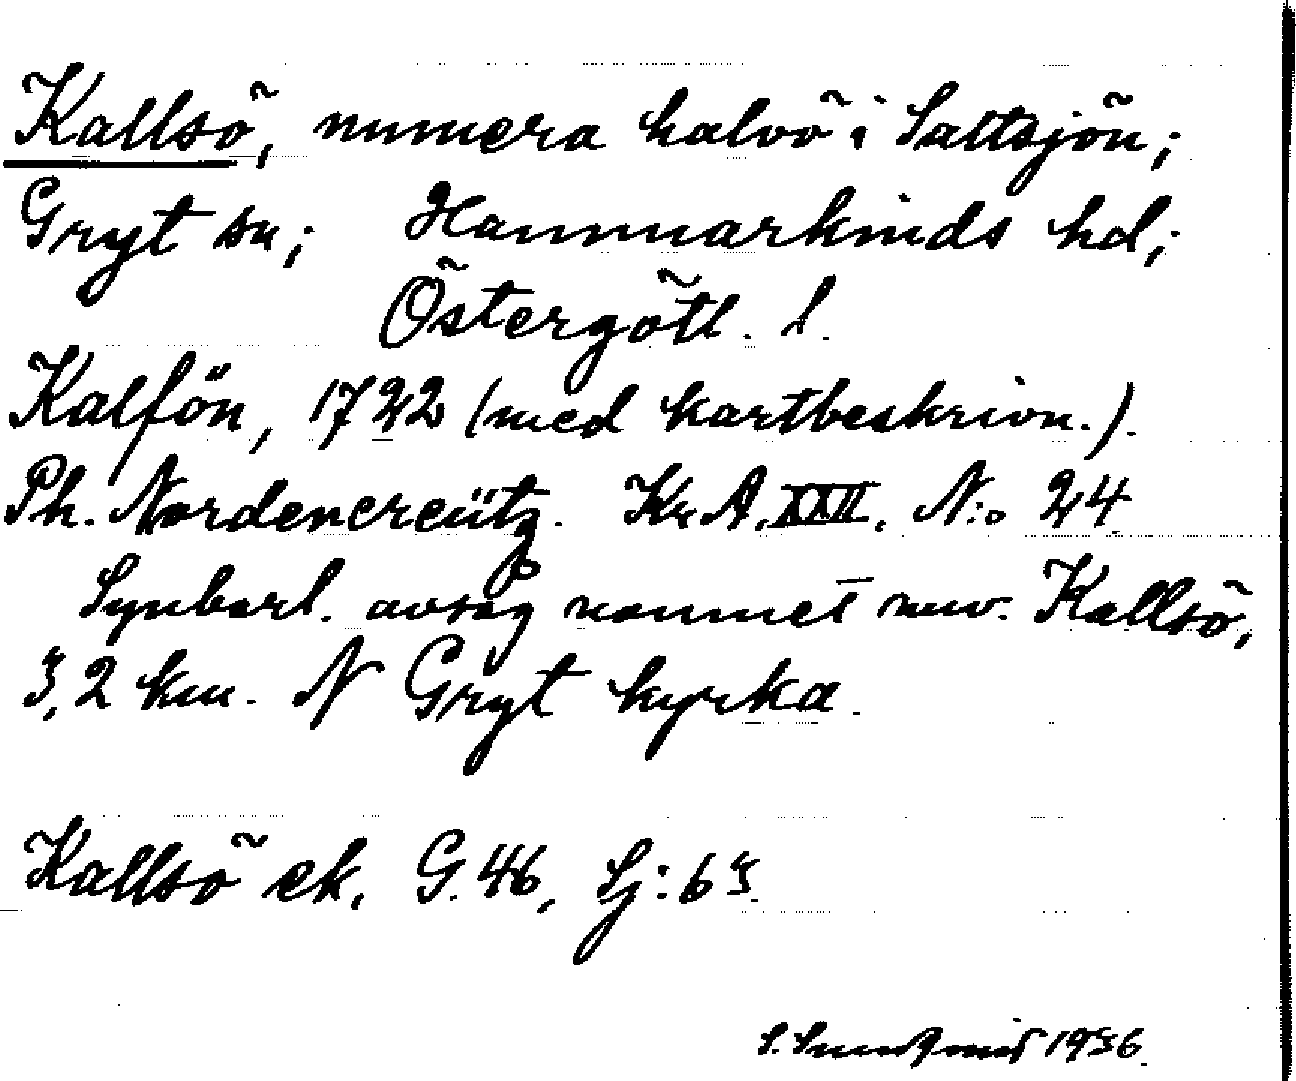 Kallsö, numera halvö i Saltsjön;
Gryt sn; Hammarkinds hd;
Östergötl. l.
Kalfön, 1722 (med kartbeskrivn.).
Ph. Nordencreütz. Kr.A. XXII. N:o 24
Synbarl. avsåg namnet nuv. Kallsö,
3,2 km. N Gryt kyrka.
Kallsö ek. G. 46, Sj: 65.
S. 1936